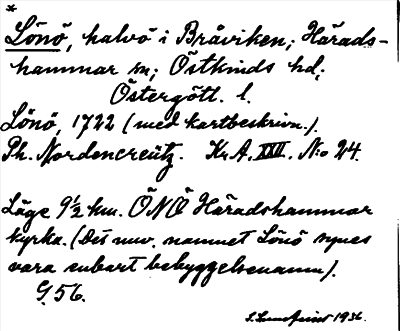 *
Lönö, halvö i Bråviken; Härads-
hammar sn; Östkinds hd;
Östergötl. l.
Lönö, 1722 (med kartbeskrivn.).
Ph. Nordencreütz. Kr.A. XXII. N:o 24.
Läge 9½ km. ÖNÖ Häradshammar
kyrka. (Det nuv. namnet Lönö synes
vara enbart bebyggelsenamn).
G. 56.
1936.